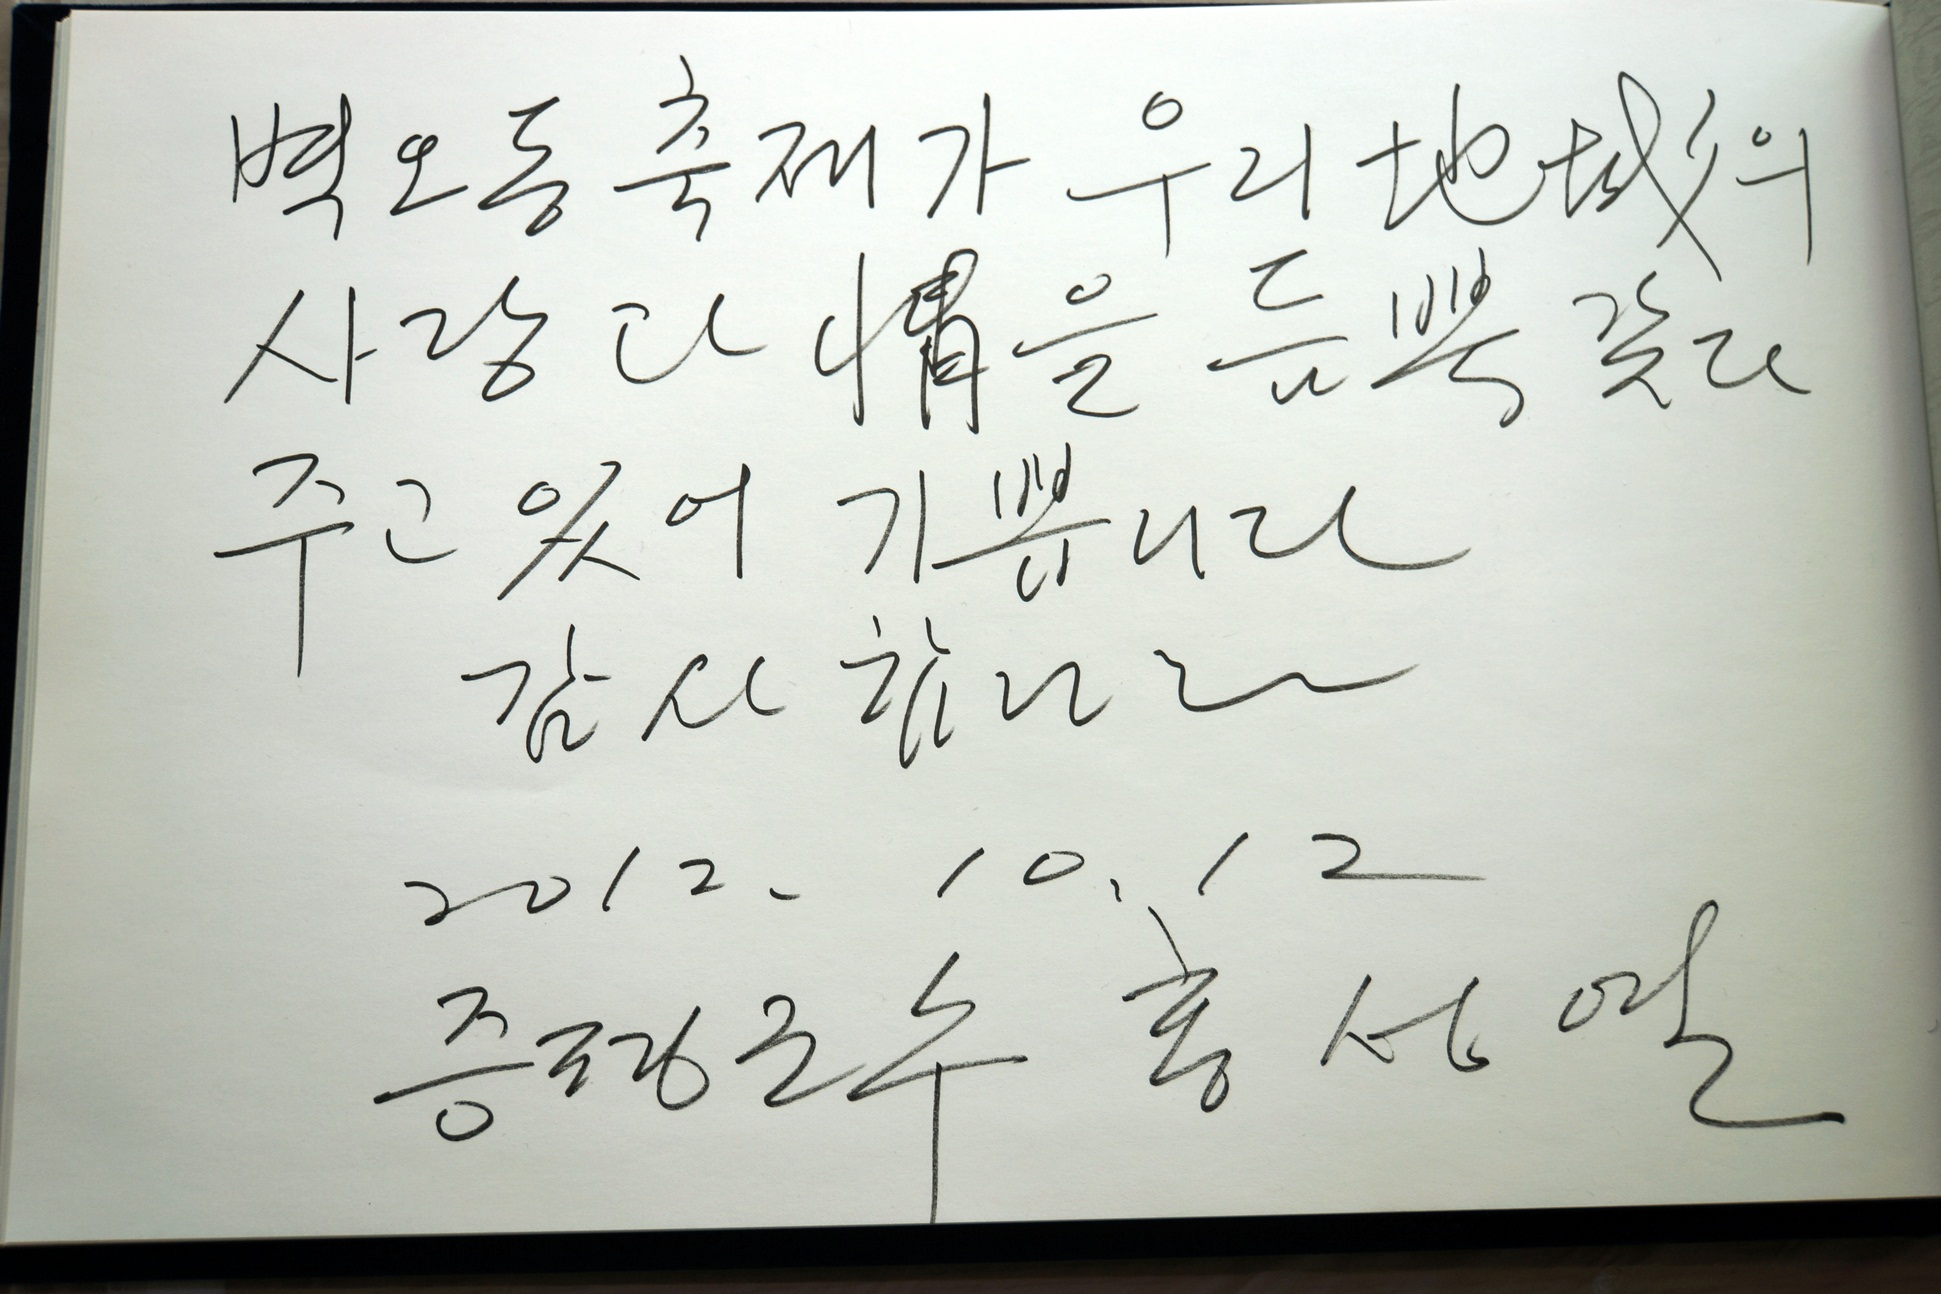 벽오동 축제가 우리 地域의
사랑과 情을 듬뿍 갖다
주고 있어 기쁩니다
감사합니다
2012. 10. 12
증평군수 홍성열